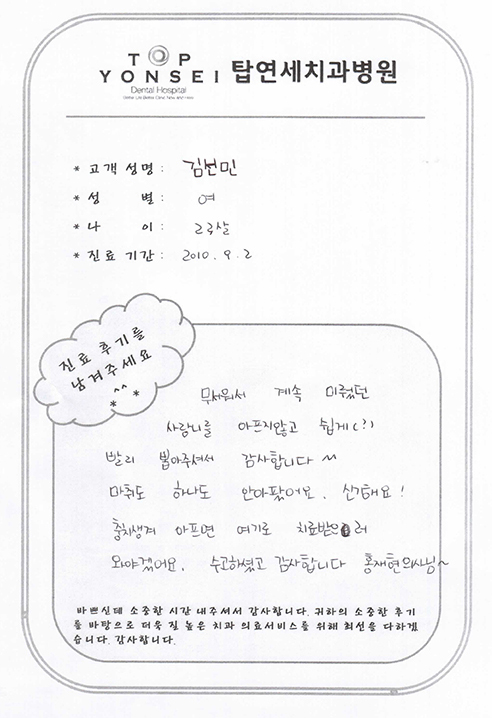 TOP
YONSEI 탑연세치과병원
Dental Hospital
* 고객 성명 : 김선민
* 성 별 : 여
* 나 이 :
* 진료 기간 : 2010. 9. 2
진료 후기를
남겨주세요
^^
* *
무서워서 계속 미뤘던
사랑니를 아프지않고 쉽게(?)
빨리 뽑아주셔서 감사합니다 ~
마취도 하나도 안아팠어요. 신기해요!
충치생겨 아프면 여기로 치료받으러
와야겠어요. 수고하셨고 감사합니다 홍재현의사님~
바쁘신데 소중한 시간 내주셔서 감사합니다. 귀하의 소중한 후기
를 바탕으로 더욱 질 높은 치과 의료서비스를 위해 최선을 다하겠
습니다. 감사합니다.